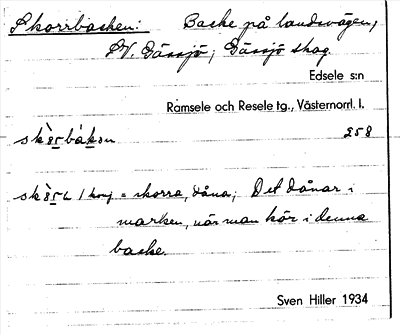 Skorrbacken: Backe på landsvägen,
SV. Gässjö; Gässjö skog.
Edsele s:n
Ramsele och Resele tg., Västernorrl. l.
258
1 konj = skorra, dåna; Det dånar i
marken, när man kör i denna
backe.
Sven Hiller 1934